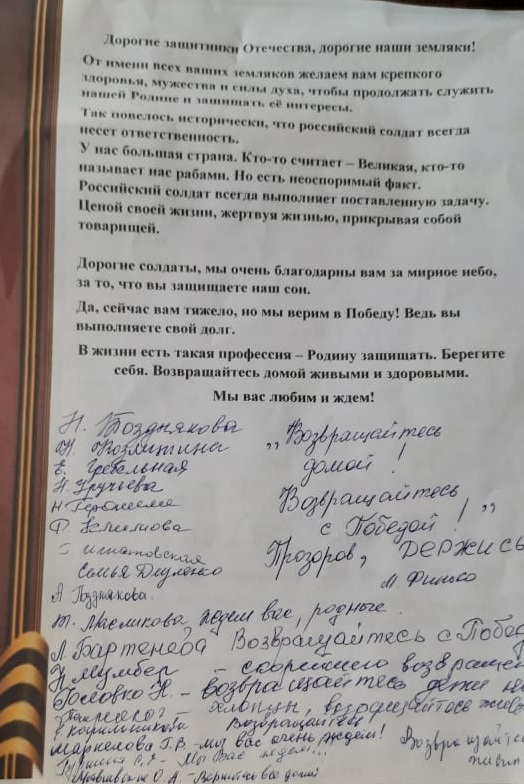 Дорогие защитники Отечества, дорогие наши земляки!
От имени всех ваших земляков желаем вам крепкого
здоровья, мужества и силы духа, чтобы продолжать служить
нашей Родине и защищать её интересы.
Так повелось исторически, что российский солдат всегда
несет ответственность.
У нас большая страна. Кто-то считает – Великая, кто-то
называет нас рабами. Но есть неоспоримый факт.
Российский солдат всегда выполняет поставленную задачу.
Ценой своей жизни, жертвуя жизнью, прикрывая собой
товарищей.
Дорогие солдаты, мы очень благодарны вам за мирное небо,
за то, что вы защищаете наш сон.
Да, сейчас вам тяжело, но мы верим в Победу! Ведь вы
выполняете свой долг.
В жизни есть такая профессия – Родину защищать. Берегите
себя. Возвращайтесь домой живыми и здоровыми.
Мы вас любим и ждем!
Н. Позднякова
„Возвращайтесь
домой!
Е. Гребельная
Возвращайтесь
с Победой!"
Прозоров, держись
Семья
А Позднякова.
Т. Маслюкова Ждем вас, родные.
Л. Бартенева Возвращайтесь с Побед
– скорейшего возвращен
Головко Н. – возвращайтесь дети
Возвращайтесь
Маркелова Г.В. – мы вас очень ждем!
– Мы Вас ждем...
Возвращайтесь
живым
О. А. – Вернитесь все